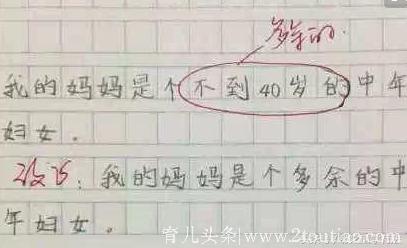 多余的.
我的妈妈是个不到40岁的中年
妇女.
改巧:我的妈妈是个多余的中
年妇女.
育儿头条|www.2toutiao.com